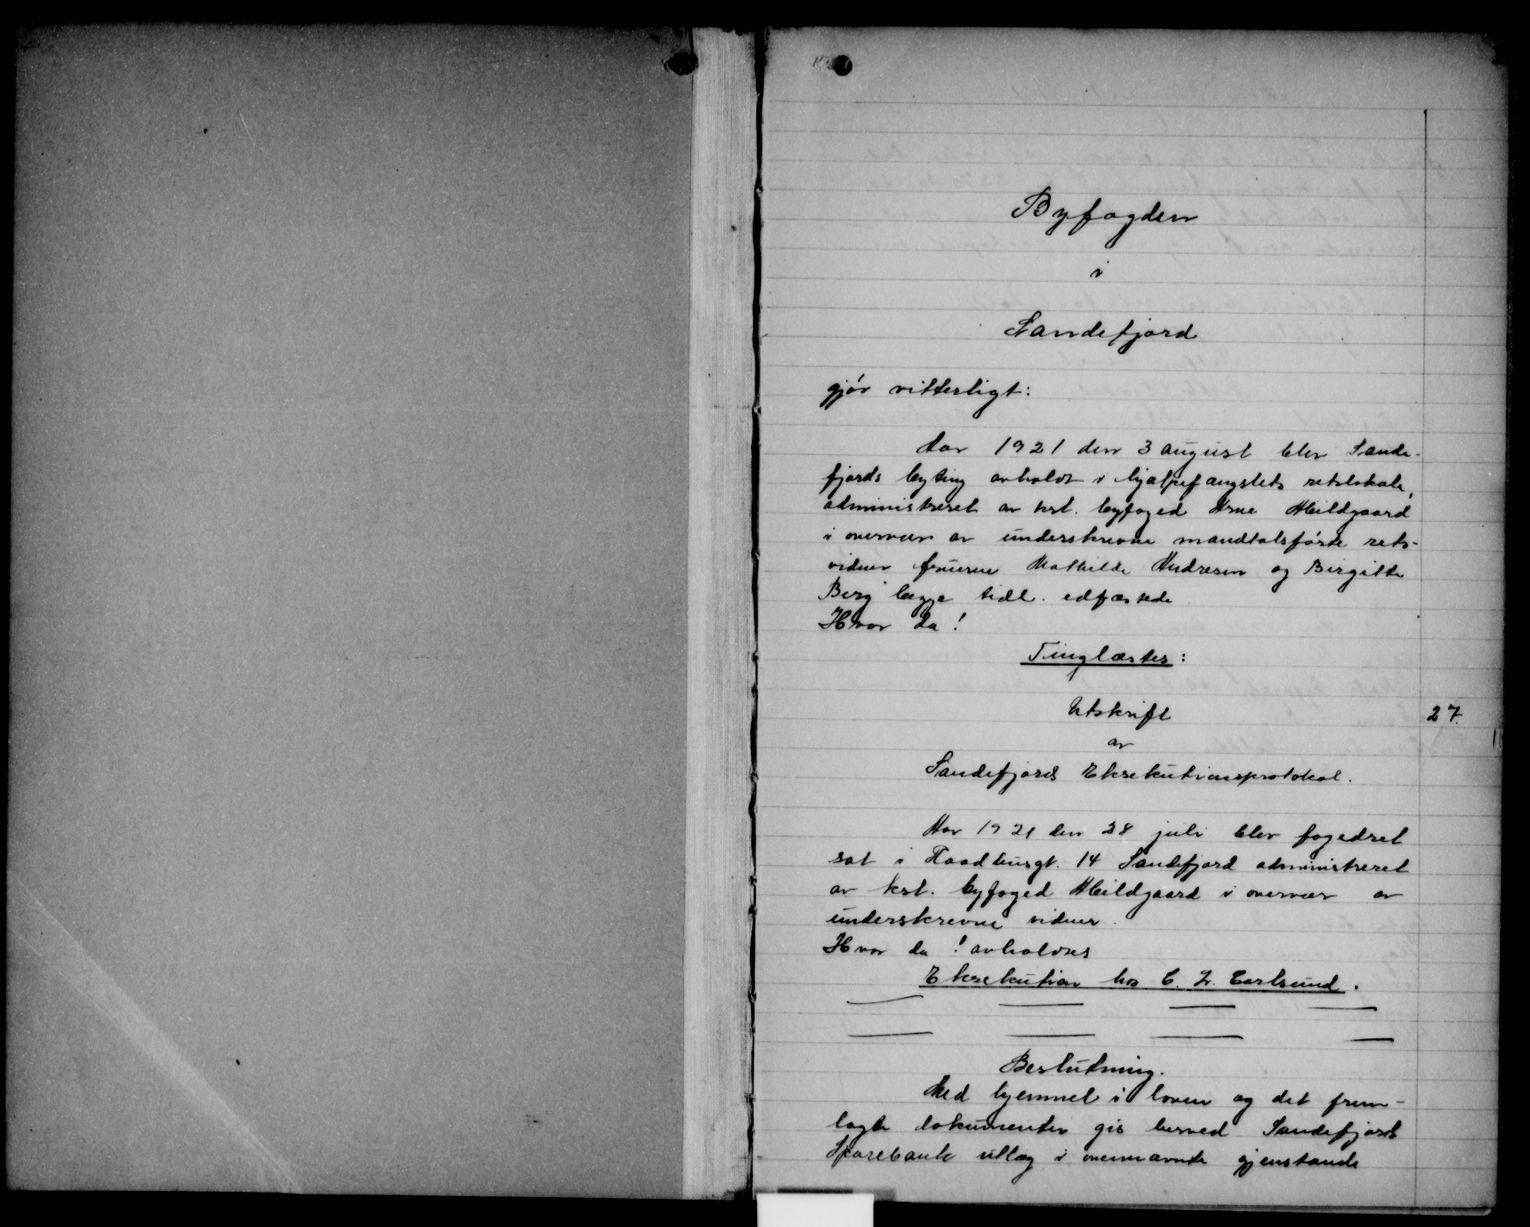 Byfogden
i
Sandefjord
gjør vitterligt:
Aar 1921 den 3 august blev Sande-
fjords byting avholdt i hjælpefængslets retslokale,
administreret av kst. byfoged Arne Meldgaard
i overvær av underskrevne mandtalsførte rets-
vidner fruerne Mathilde Andresen og Birgitte
Berg begge tidl. edfæstede
Hvor da!
Tinglæstes:
Utskrift
27.
av
Sandefjords Eksekutionsprotokol.
Aar 1921 den 28 juli blev fogedret
sat i Raadhusgt. 14 Sandefjord administreret
av kst. byfoged Meldgaard i overvær av
underskrevne vidner.
Hvor da! avholdtes
Eksekution hos C. L. Carlsund.
Beslutning.
Med hjemmel i loven og det frem-
lagte dokumenter gis herved Sandefjords
Sparebank utlæg i ovennævnte gjenstande